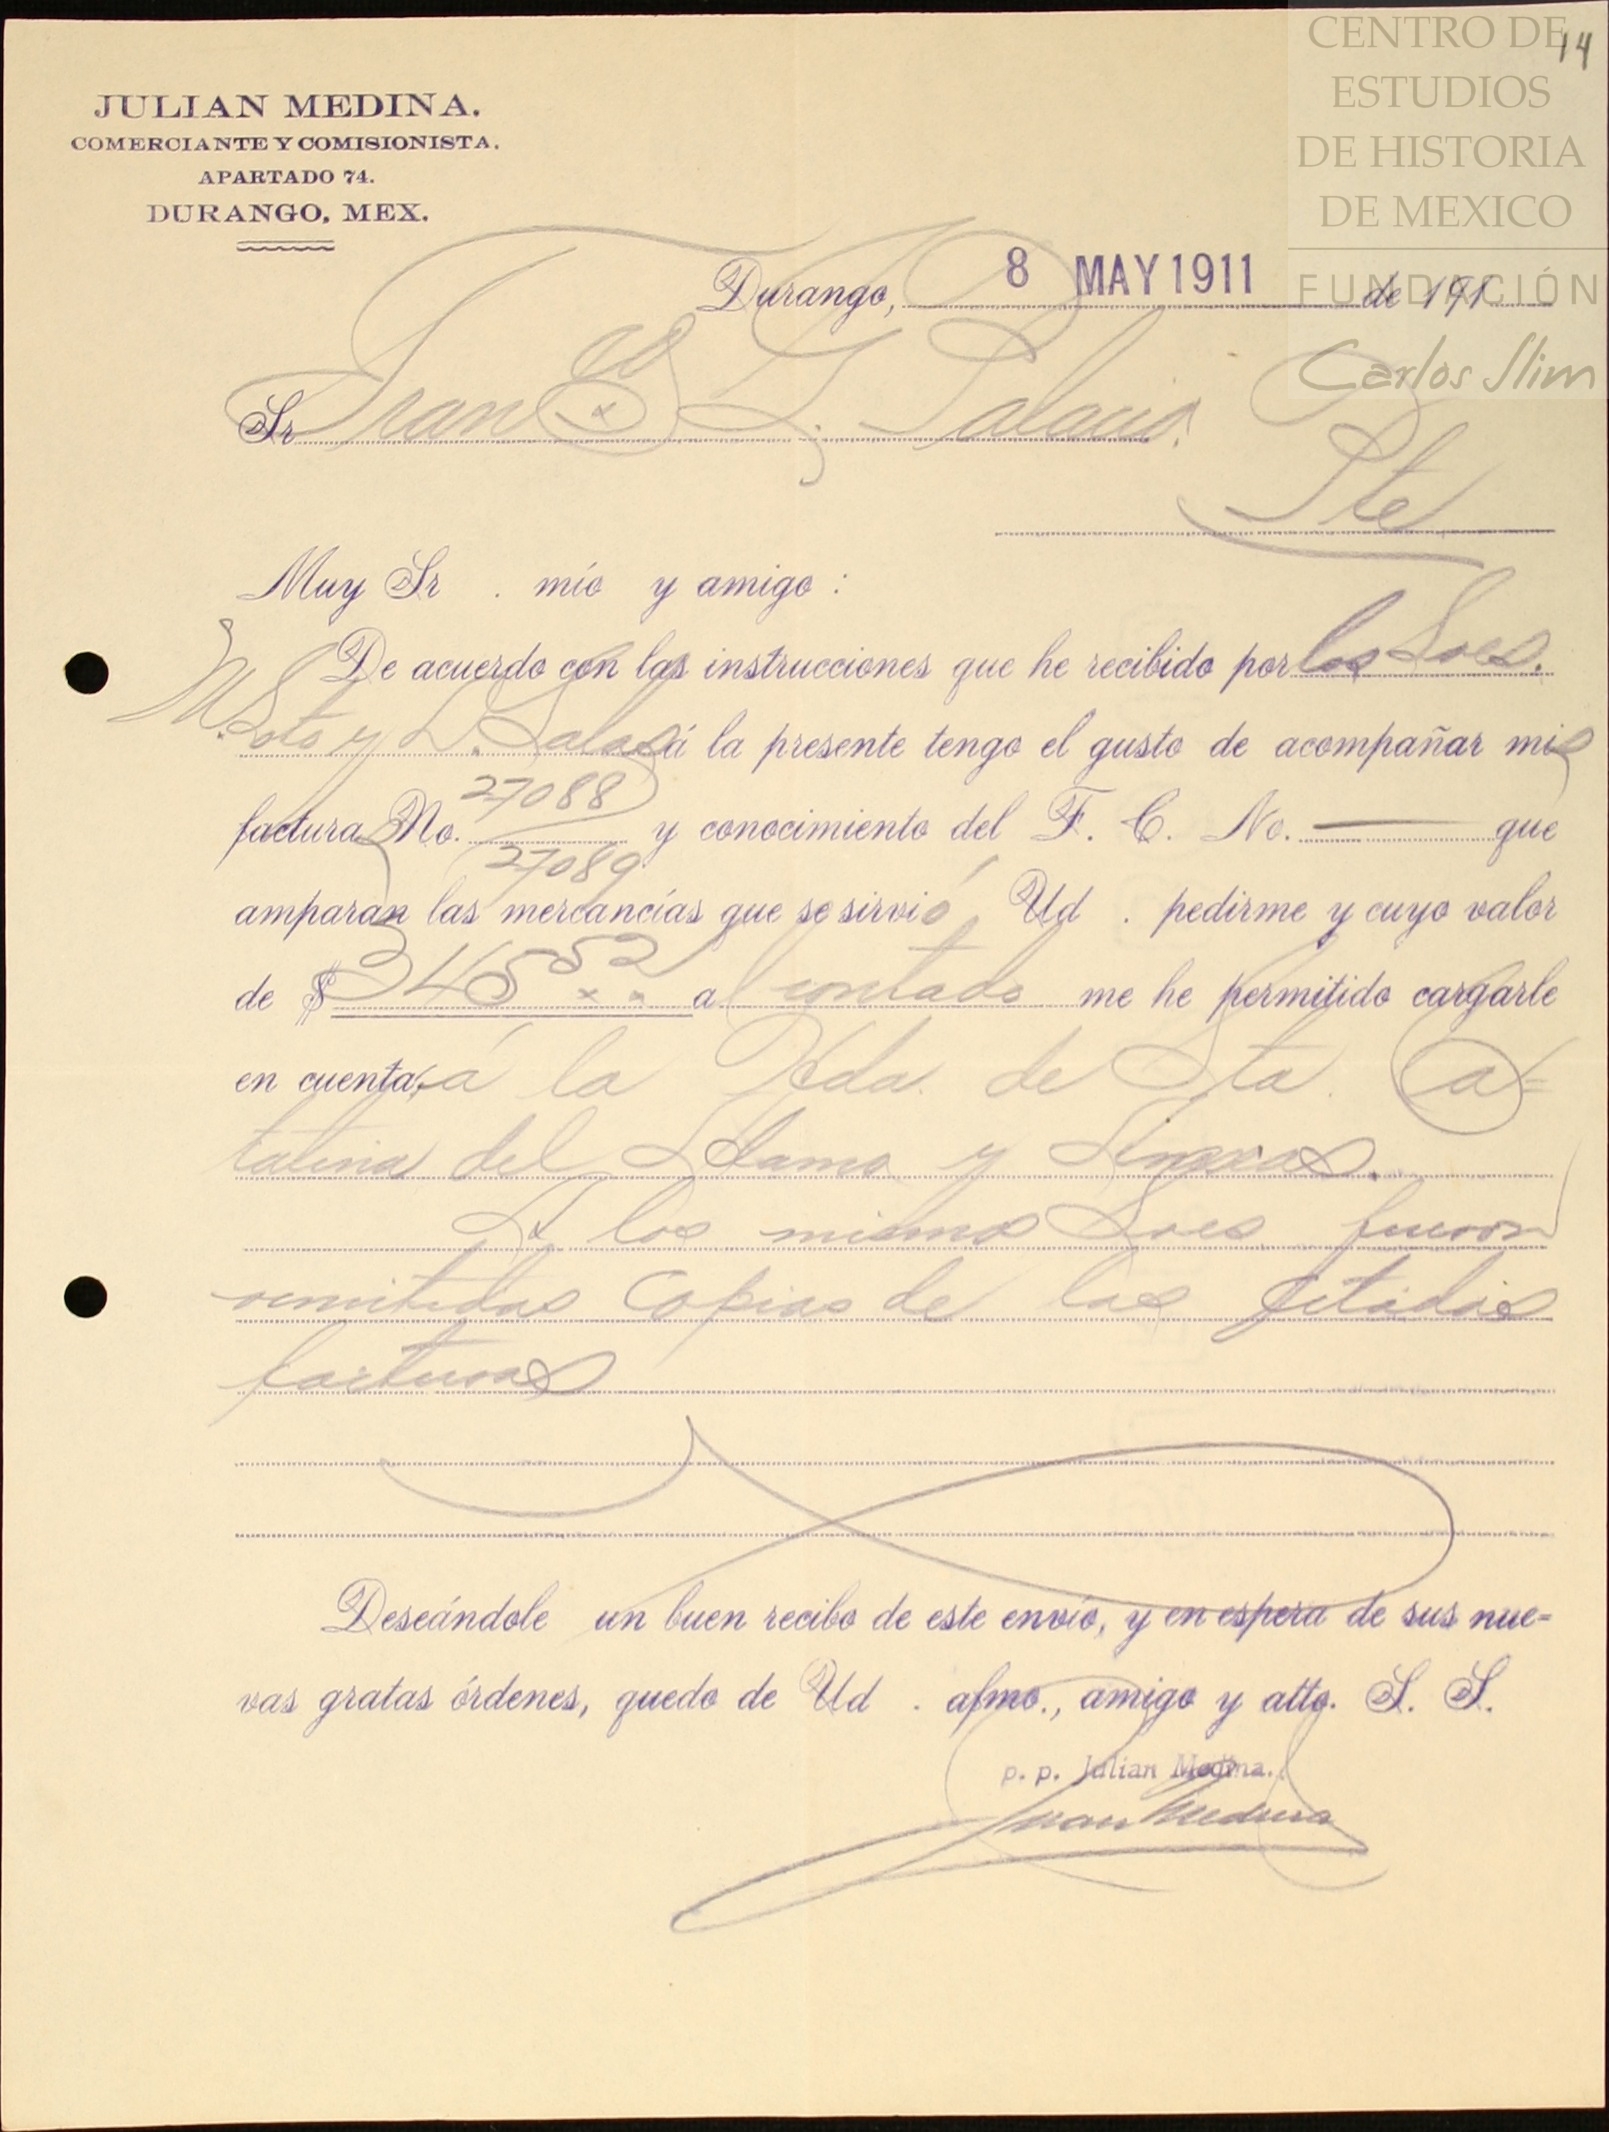 CENTRO DE
ESTUDIOS
DE HISTORIA
DE MEXICO
FUNDACIÓN
Carlos Slim
14
JULIAN MEDINA.
COMERCIANTE Y COMISIONISTA.
APARTADO 74.
DURANGO, MEX.
Durango, 8 MAY 1911 de 191
Sr Fran co G. Palacio.
Pte
Muy Sr . mío y amigo :
De acuerdo con las instrucciones que he recibido por los Sres.
M. Soto y L. Salas á la presente tengo el gusto de acompañar mis
factura No. 27088 y conocimiento del F. C. No. — que
27089
amparan las mercancías que se sirvió Ud . pedirme y cuyo valor
de $ 345 52 al contado me he permitido cargarle
en cuenta, á la Hda. de Sta. Ca=
talina del Alamo y Anexas.
A los mismos Sres. fueron
remitidas copias de las citadas
facturas
Deseándole un buen recibo de este envío, y en espera de sus nue=
vas gratas órdenes, quedo de Ud . afmo., amigo y atto. S. S.
p. p. Julian Medina.
Juan Medina